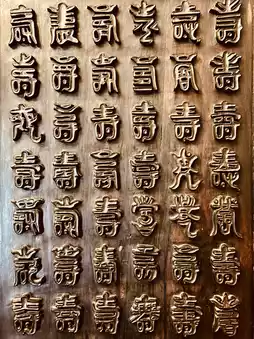 壽壽壽壽壽壽
壽壽壽壽壽壽
壽壽壽壽壽壽
壽壽壽壽壽壽
壽壽壽壽壽壽
壽壽壽壽壽壽
壽壽壽壽壽壽